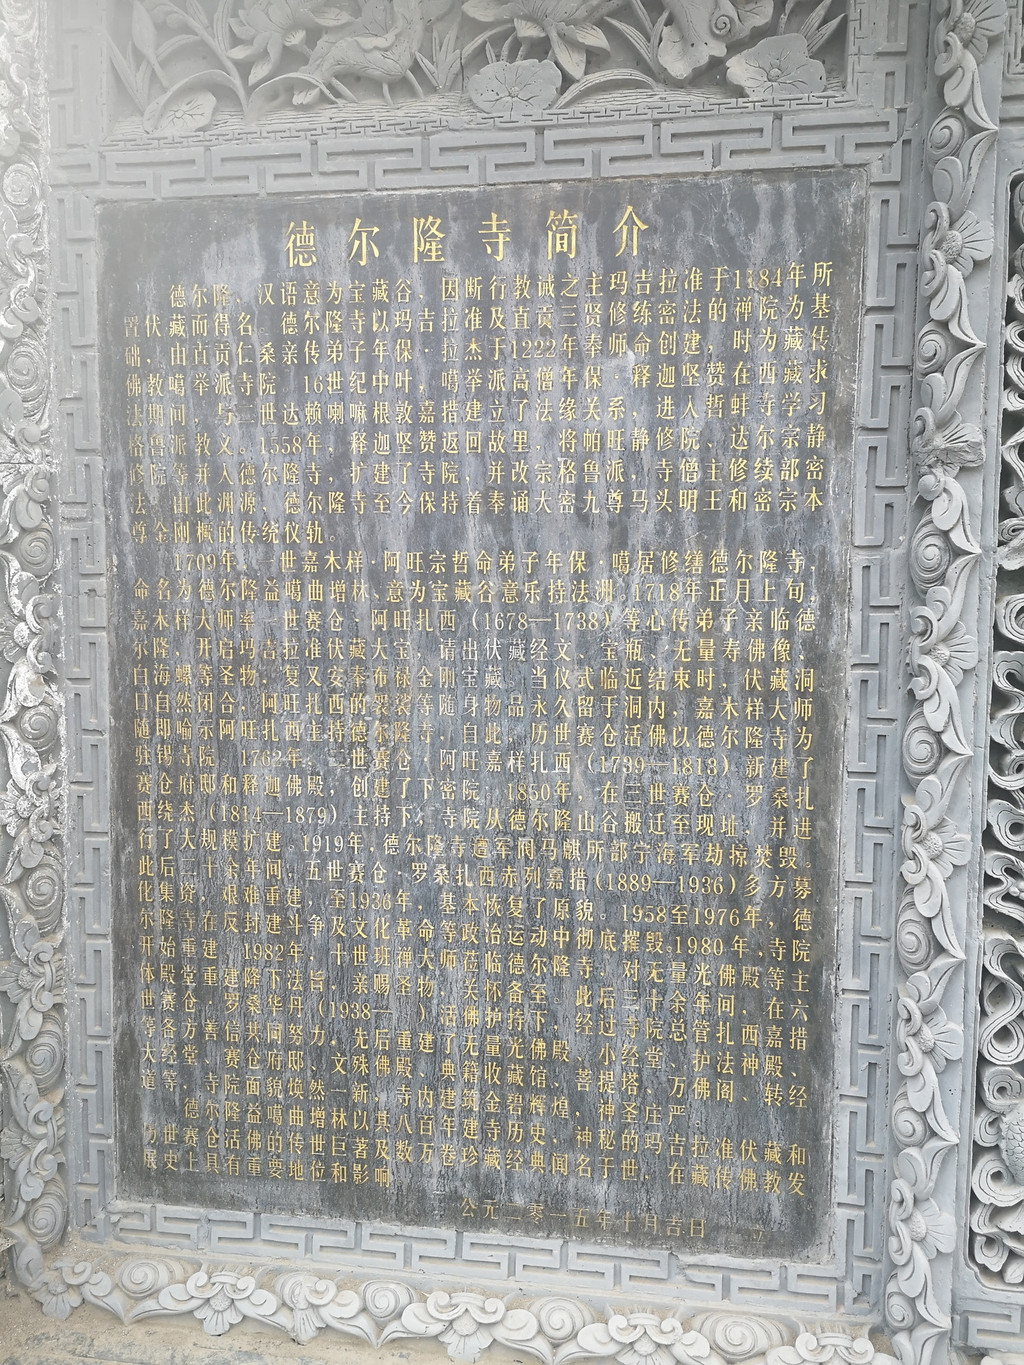 德尔隆寺简介
德尔隆、汉语意为宝藏谷，因断行教诫之主玛吉拉准于1184年所
置伏藏而得名。德尔隆寺以玛吉拉准及直贡三贤修练密法的禅院为基
础，由直贡仁桑亲传弟子年保·拉杰于1222年奉师命创建，时为藏传
佛教噶举派寺院 16世纪中叶，噶举派高僧年保·释迦坚赞在西藏求
法期间，与二世达赖喇嘛根敦嘉措建立了法缘关系，进入哲蚌寺学习
格鲁派教义。1558年，释迦坚赞返回故里，将帕旺静修院、达尔宗静
修院等并入德尔隆寺，扩建了寺院，并改宗格鲁派，寺僧主修续部密
法 由此渊源，德尔隆寺至今保持着奉诵大密九尊马头明王和密宗本
尊金刚橛的传统仪轨。
1709年，一世嘉木样·阿旺宗哲命弟子年保·噶居修缮德尔隆寺，
命名为德尔隆益噶曲增林、意为宝藏谷意乐持法洲。1718年正月上旬，
嘉木样大师率一世赛仓·阿旺扎西（1678—1738）等心传弟子亲临德
尔隆，开启玛吉拉准伏藏大宝，请出伏藏经文、宝瓶、无量寿佛像、
白海螺等圣物，复又安奉布禄金刚宝藏。当仪式临近结束时，伏藏洞
口自然闭合，阿旺扎西的袈裟等随身物品永久留于洞内，嘉木样大师
随即喻示阿旺扎西主持德尔隆寺，自此，历世赛仓活佛以德尔隆寺为
驻锡寺院 1762年，二世赛仓·阿旺嘉样扎西（1739—1813）新建了
赛仓府邸和释迦佛殿，创建了下密院 1850年，在三世赛仓·罗桑扎
西绕杰（1814—1879）主持下，寺院从德尔隆山谷搬迁至现址，并进
行了大规模扩建。1919年，德尔隆寺遭军阀马麒所部宁海军劫掠焚毁。
此后二十余年间，五世赛仓·罗桑扎西赤列嘉措（1889—1936）多方募
化集资，艰难重建，至1936年，基本恢复了原貌。1958至1976年，德
尔隆寺在反封建斗争及文化革命等政治运动中彻底摧毁。1980年，寺院
开始重建 1982年，十世班禅大师莅临德尔隆寺，对无量光佛殿等主
体殿堂重建降下法旨，亲赐圣物，关怀备至。此后二十余年间，在六
世赛仓·罗桑华丹（1938— ）活佛护持下，经过寺院总管扎西嘉措
等各方善信共同努力，先后重建了无量光佛殿、小经堂、护法神殿、
大经堂、赛仓府邸、文殊佛殿、典籍收藏馆、菩提塔、万佛阁、转经
道等，寺院面貌焕然一新 寺内建筑金碧辉煌，神圣庄严。
德尔隆益噶曲增林以其八百年建寺历史、神秘的玛吉拉准伏藏和
历世赛仓活佛传世巨著及数万卷珍藏经典闻名于世，在藏传佛教发
展史上具有重要地位和影响
公元二零一五年十月吉日 立